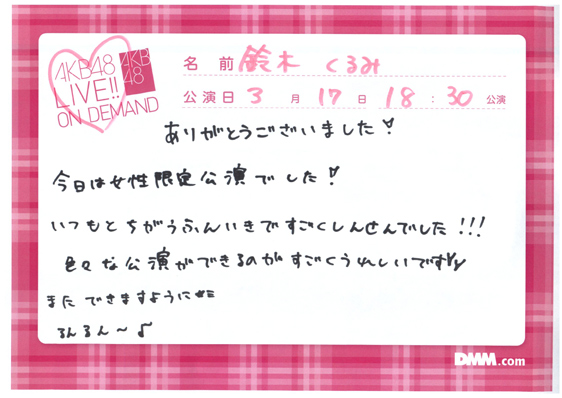 AKB48
LIVE!!
ON DEMAND
AKB
48
名 前 鈴木 くるみ
公演日 3 月 17 日 18 : 30 公演
ありがとうございました!
今日は女性限定公演でした!
いつもとちがうふんいきですごくしんせんでした!!!
色々な公演ができるのがすごくうれしいです
また できますように
るんるん~♪
DMM.com